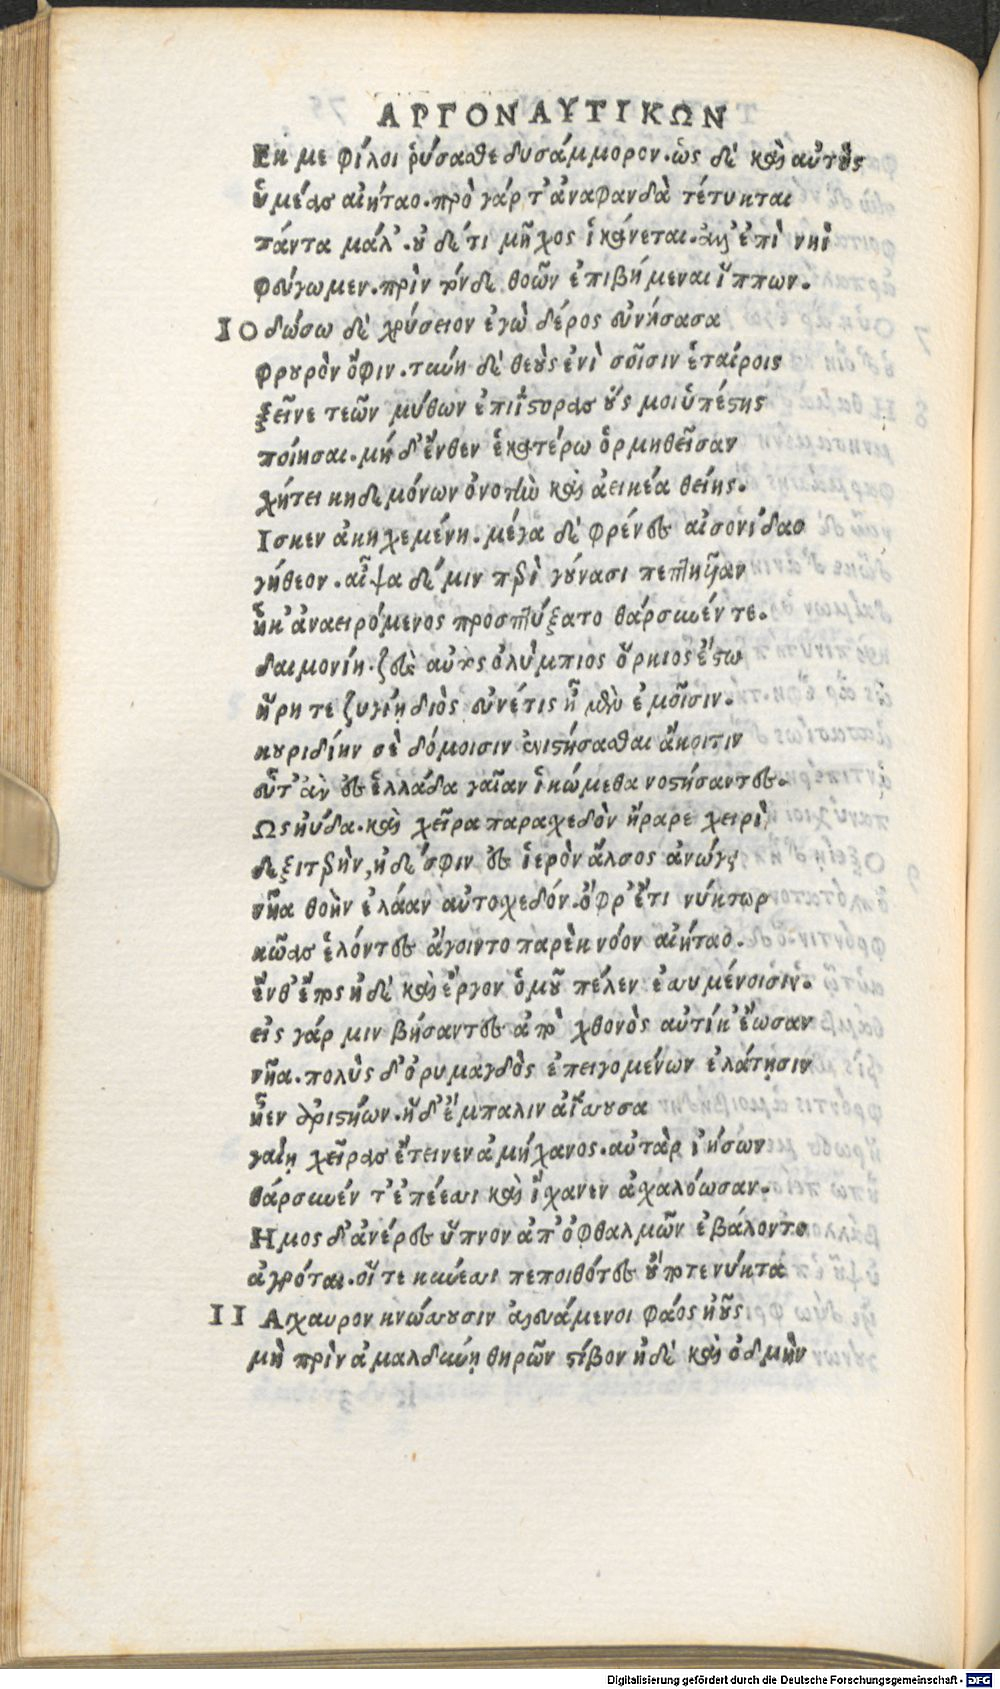 ΑΡΓΟΝΑΥΤΙΚΩΝ
Εκ με φίλοι ῥύσασθε δυσάμμορον. ὡς δὲ καὶ αὐτοὺς
ὑμέας αἰήταο. πρὸ γάρ τ' ἀναφανδὰ τέτυκται
πάντα μάλ'. οὐδέ τι μῆχος ἱκάνεται. ἀλλ' ἐπὶ νηῒ
φεύγωμεν. πρὶν τόνδε θοῶν ἐπιβήμεναι ἵππων.
10 δώσω δὲ χρύσειον ἐγὼ δέρος εὐνήσασα
φρουρὸν ὄφιν. τύνη δὲ θεοὺς ἐνὶ σοῖσιν ἑταίροις
ξεῖνε τεῶν μύθων ἐπιΐστορας οὕς μοι ὑπέστης
ποίησαι. μήδ' ἔνθεν ἑκατέρω ὁρμηθεῖσαν
χήτει κηδεμόνων ὀνοτὴν καὶ ἀεικέα θείης.
Ισκεν ἀκηχεμένη. μέγα δὲ φρένες αἰσονίδαο
γήθεον. αἶψα δέ μιν περὶ γούνασι πεπτηυῖαν
ἦκ' ἀναειρόμενος προσπτύξατο θάρσυνέν τε.
δαιμονίη. ζεὺς αὐτὸς ὀλύμπιος ὅρκιος ἔστω
ἥρη τε ζυγίη διὸς εὐνέτις ἦ μὲν ἐμοῖσιν.
κουριδίην σὲ δόμοισιν ἐνιστήσασθαι ἄκοιτιν
εὖτ' ἂν ἐς ἑλλάδα γαῖαν ἱκώμεθα νοστήσαντες.
Ως ηὔδα. καὶ χεῖρα παρασχεδὸν ἤραρε χειρὶ
δεξιτερὴν, ἡ δέ σφιν ἐς ἱερὸν ἄλσος ἀνώγει
νῆα θοὴν ἐλάαν αὐτοσχεδόν. ὄφρ' ἔτι νύκτωρ
κῶας ἑλόντες ἄγοιντο παρὲκ νόον αἰήταο.
ἔνθ' ἔπος ἠδὲ καὶ ἔργον ὁμοῦ πέλεν ἐσσυμένοισιν.
εἰς γάρ μιν βήσαντες ἀπὸ χθονὸς αὐτίκ' ἔωσαν
νῆα. πολὺς δ' ὀρυμαγδὸς ἐπειγομένων ἐλάτῃσιν
ἦεν ἀριστήων. ἡ δ' ἔμπαλιν ἀΐσσουσα
γαίῃ χεῖρας ἔτεινεν ἀμήχανος. αὐτὰρ ἰήσων
θάρσυνέν τ' ἐπέεσσι καὶ ἴσχανεν ἀσχαλόωσαν.
Ημος δ' ἀνέρες ὕπνον ἀπ' ὀφθαλμῶν ἐβάλοντο
ἀγρόται. οἵ τε κύνεσσι πεποιθότες οὔποτε νύκτα
11 Αγχαυρον κνώσσουσιν ἀλευάμενοι φάος ἠοῦς
μὴ πρὶν ἀμαλδύνῃ θηρῶν στίβον ἠδὲ καὶ ὀδμὴν
Digitalisierung gefördert durch die Deutsche Forschungsgemeinschaft - DFG